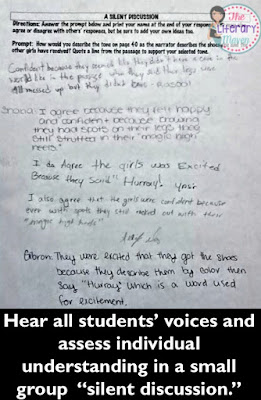 A SILENT DISCUSSION
Directions: Answer the prompt below and print your name at the end of your response.
agree or disagree with others' responses, but be sure to add your own ideas too.
Prompt: How would you describe the tone on page 40 as the narrator describes the shoes
other girls have received? Quote a line from the passage to support your selected tone.
The
Literary
Maven
Confident because they
like they didn't have a care in the
world like in the passage they said their legs were
All messed up but they didn't
I agree because they felt happy
and confident because
they had spots on their legs they
still strutted in their "magic high
heels."
I do Agree the girls was Excited
Because they Said "Hurray!
I also agree that the girls were confident because
even with spots they still walked out with their
"magic high heels"
They were excited that they got the shoes
because they describe them by color then
say "Hurray," which is a word used
for excitement.
Hear all students' voices and
assess individual
understanding in a small
group "silent discussion."